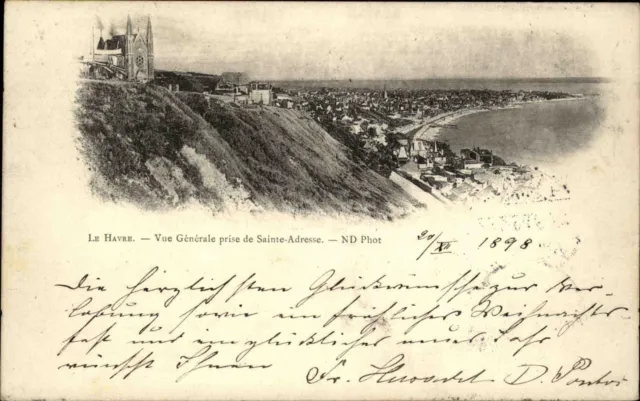 Le Havre. — Vue Générale prise de Sainte-Adresse. — ND Phot
20/XII 1898
die herzlichsten Glückwünsche zur Ver-
lobung sowie ein frohes Weihnachts-
fest und ein glückliches neues Jahr
wünscht Ihnen
Fr.